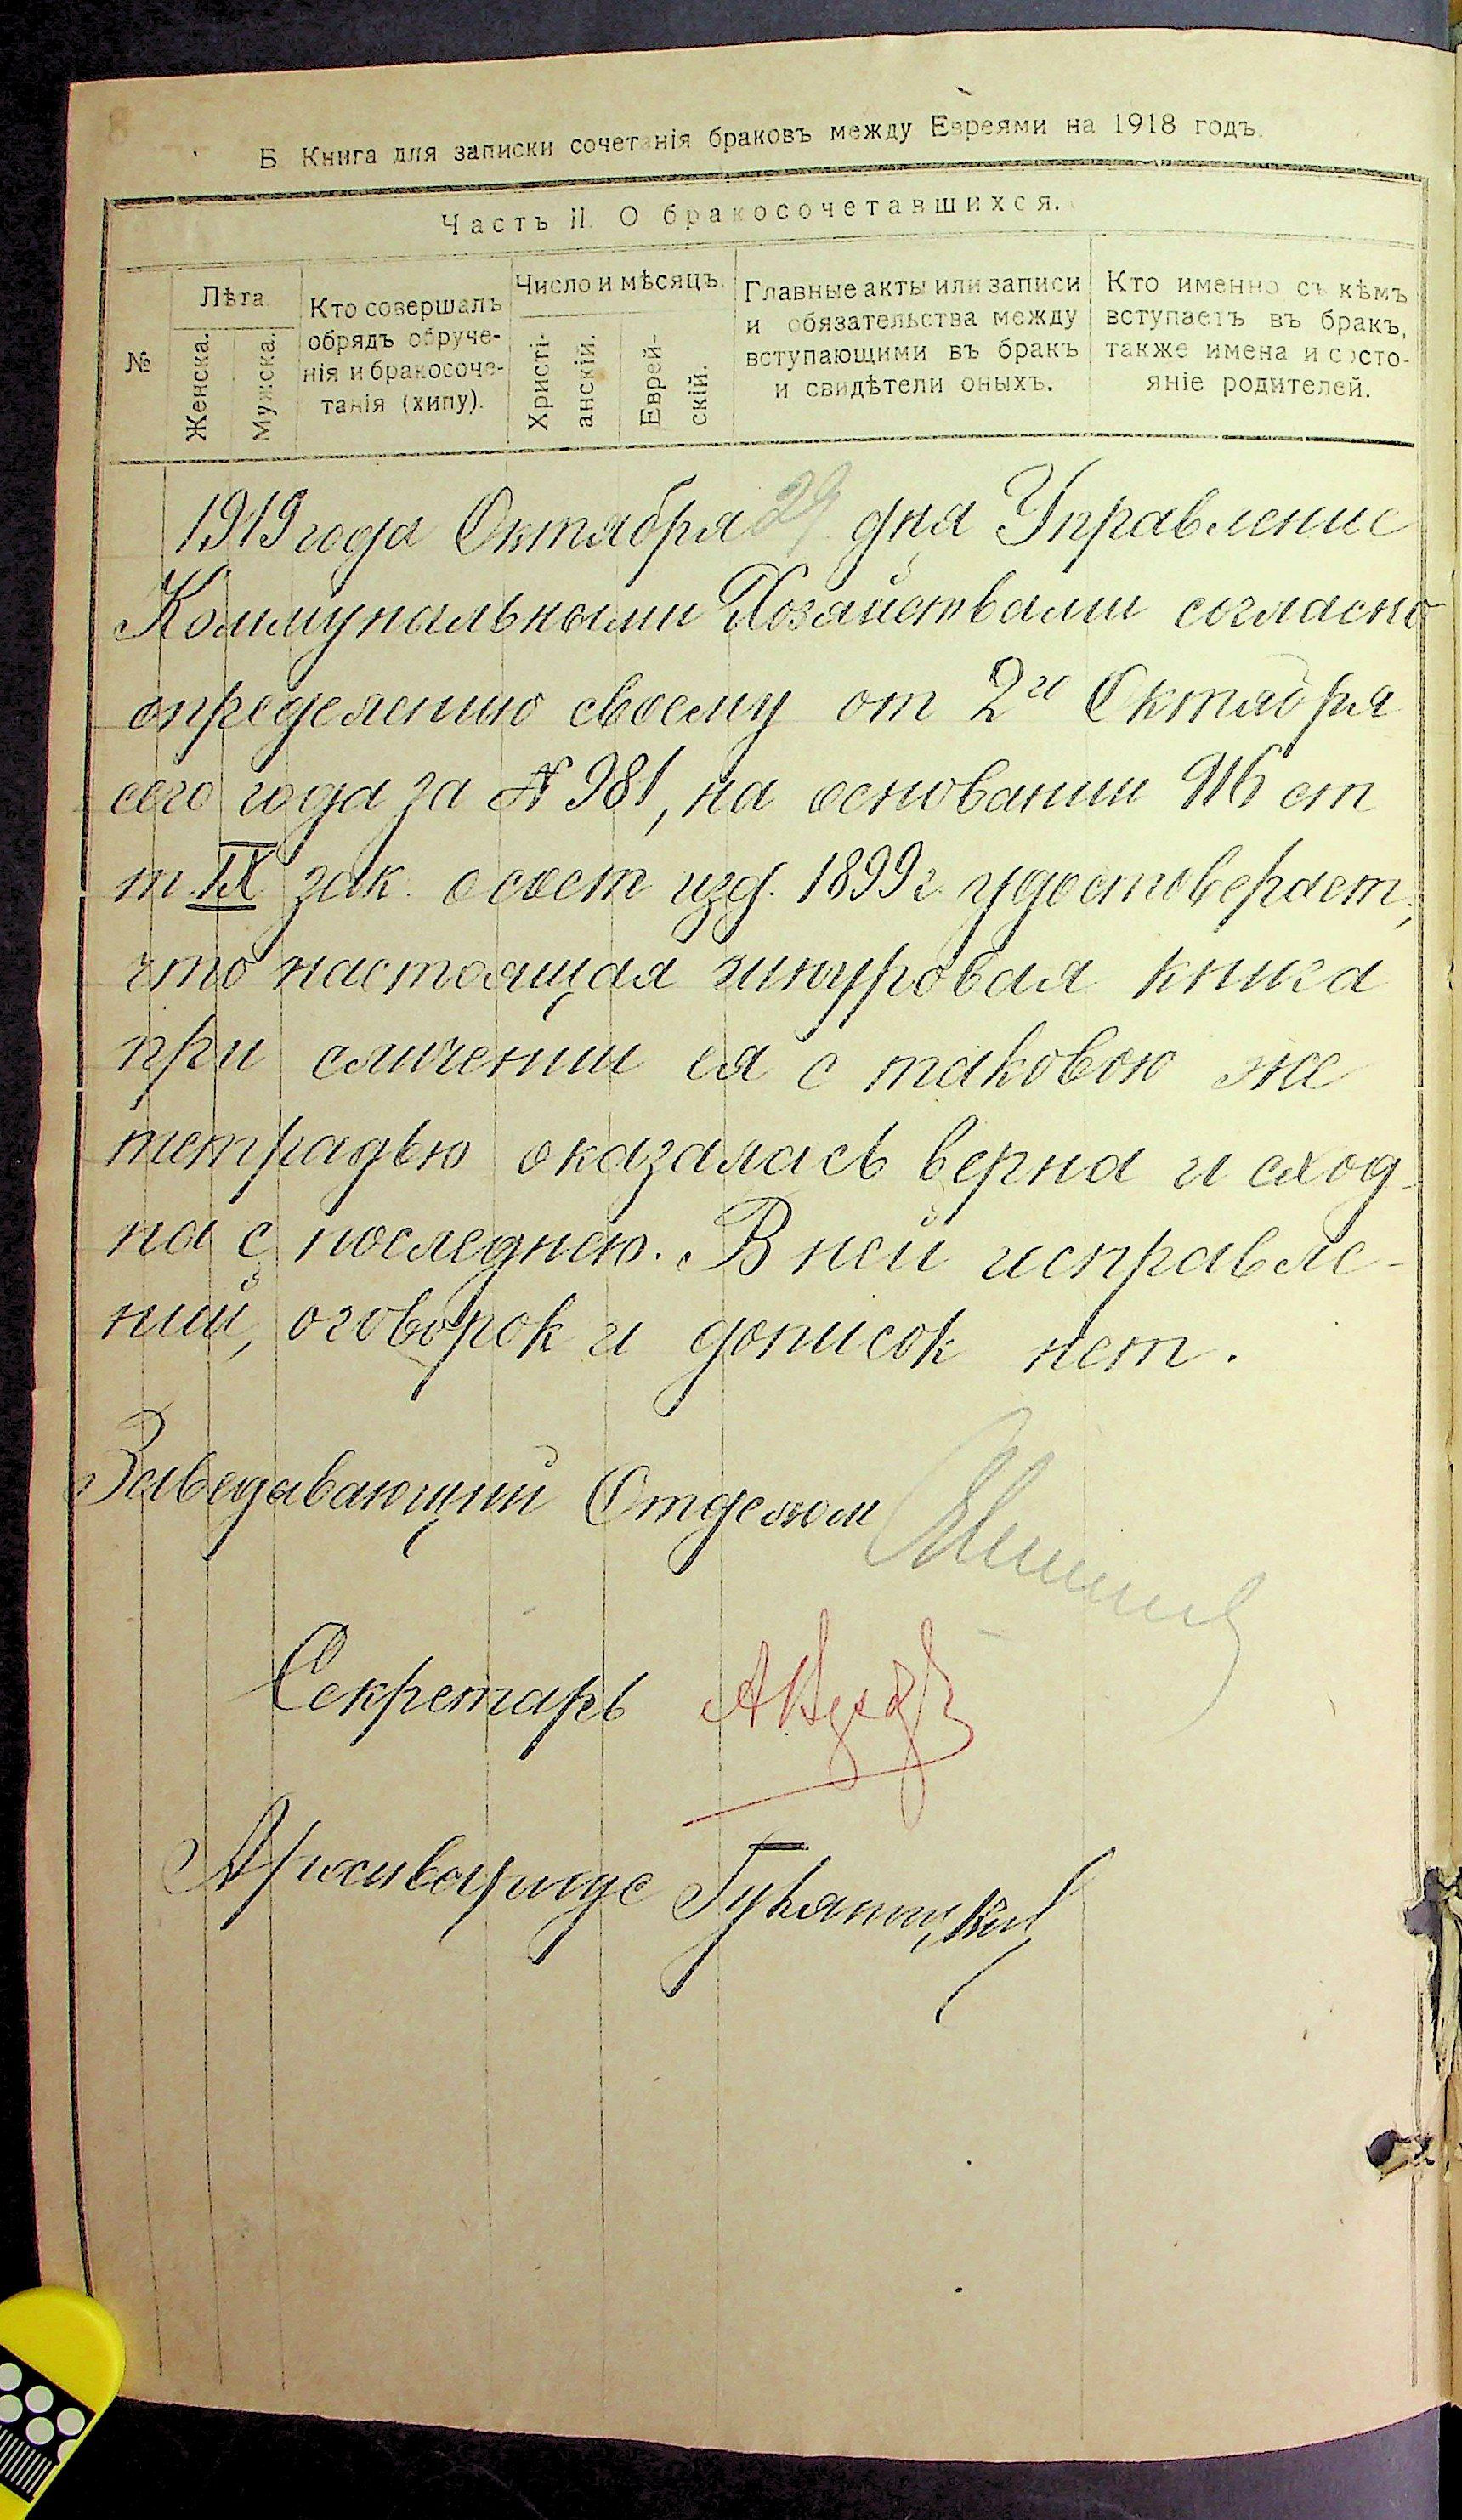 Б Книга для записки сочетанія браковъ между Евреями на 1918 годъ.
Часть II. О бракосочетавшихся.
№
Лѣта
Женска.
Мужска.
Кто совершалъ
обрядъ обруче-
нія и бракосоче-
танія (хипу).
Число и мѣсяцъ.
Христі-
анскій.
Еврей-
скій.
Главные акты или записи
и обязательства между
вступающими въ бракъ
и свидѣтели оныхъ.
Кто именно съ кѣмъ
вступаетъ въ бракъ,
также имена и состо-
яніе родителей.
1919 года Октября 29 дня Управление
Коммунальными Хозяйствами согласно
определению своему от 2го Октября
сего года за № 981, на основании 916 ст
т. IX зак. о сост изд. 1899 г. удостоверяет,
что настоящая шнуровая книга
при сличении ея с таковою же
тетрадью оказалась верна и сход-
на с последнею. В ней исправле-
ний, оговорок и дописок нет.
Заведавающий Отделом
Секретарь
Архивариус